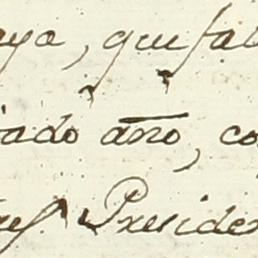 aya, que fal
iado año, co
res. Presiden